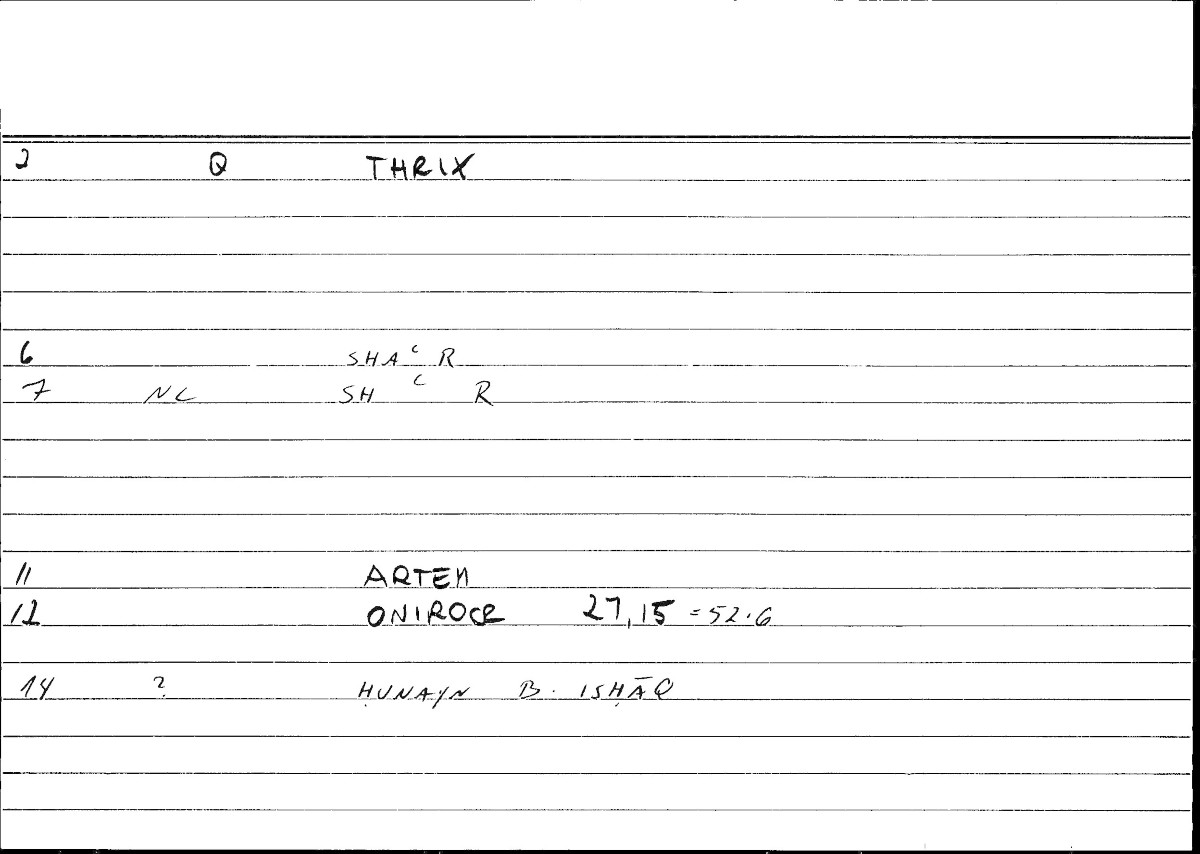 2 Q THRIX
6 SHAʿR
7 NC SH ʿ R
11 ARTEM
12 ONIROCR 27,15 = 52.6
14 ? ḤUNAYN B. ISḤĀQ